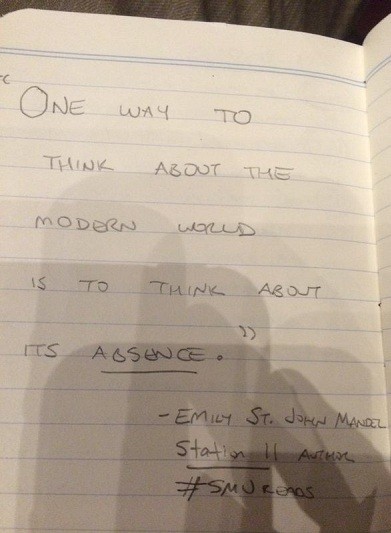 "ONE WAY TO
THINK ABOUT THE
MODERN WORLD
IS TO THINK ABOUT
ITS ABSENCE."
- EMILY ST. JOHN MANDEL
Station 11 AUTHOR
#SMUREADS